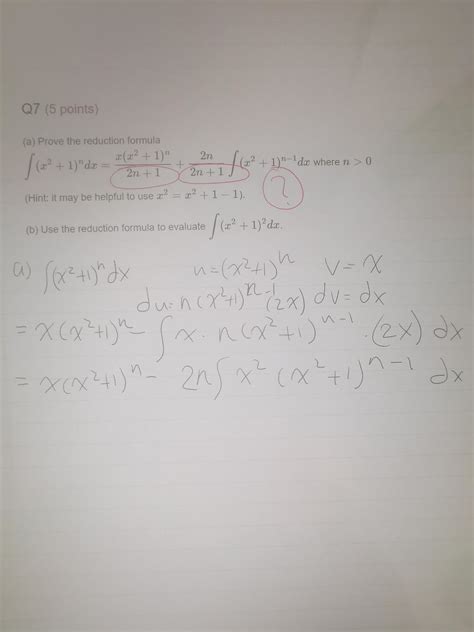 Q7 (5 points)
(a) Prove the reduction formula
∫(x² + 1)ⁿdx = x(x² + 1)ⁿ / 2n + 1 + 2n / 2n + 1 ∫(x² + 1)ⁿ⁻¹dx where n > 0
(Hint: it may be helpful to use x² = x² + 1 − 1).
?
(b) Use the reduction formula to evaluate ∫(x² + 1)²dx.
a) ∫(x²+1)ⁿdx u=(x²+1)ⁿ v= x
du= n(x²+1)ⁿ⁻¹(2x) dv= dx
= x(x²+1)ⁿ- ∫x · n(x²+1)ⁿ⁻¹ · (2x) dx
= x(x²+1)ⁿ- 2n∫x² (x²+1)ⁿ⁻¹ dx